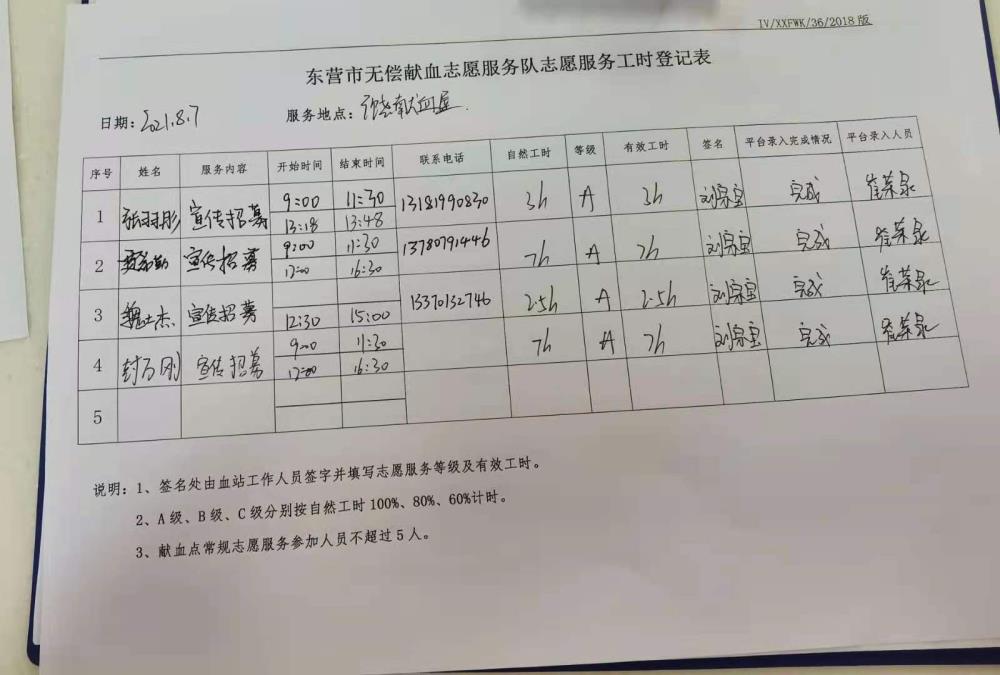 IV/XXFWK/36/2018版
东营市无偿献血志愿服务队志愿服务工时登记表
日期：2021.8.7 服务地点：饶献血屋.
序号 姓名 服务内容 开始时间 结束时间 联系电话 自然工时 等级 有效工时 签名 平台录入完成情况 平台录入人员
1 张羽彤 宣传招募 9:00 11:30 13181990830 3h A 3h 刘宗宝 完成 崔荣泉
13:18 13:48
2 宣传招募 9:00 11:30 13780791446 7h A 7h 刘宗宝 完成 崔荣泉
12:00 16:30
3 魏士杰 宣传招募 12:30 15:00 15370132746 2.5h A 2.5h 刘宗宝 完成 崔荣泉
4 封万刚 宣传招募 9:00 11:30 7h A 7h 刘宗宝 完成 崔荣泉
12:00 16:30
5
说明：1、签名处由血站工作人员签字并填写志愿服务等级及有效工时。
2、A级、B级、C级分别按自然工时100%、80%、60%计时。
3、献血点常规志愿服务参加人员不超过5人。